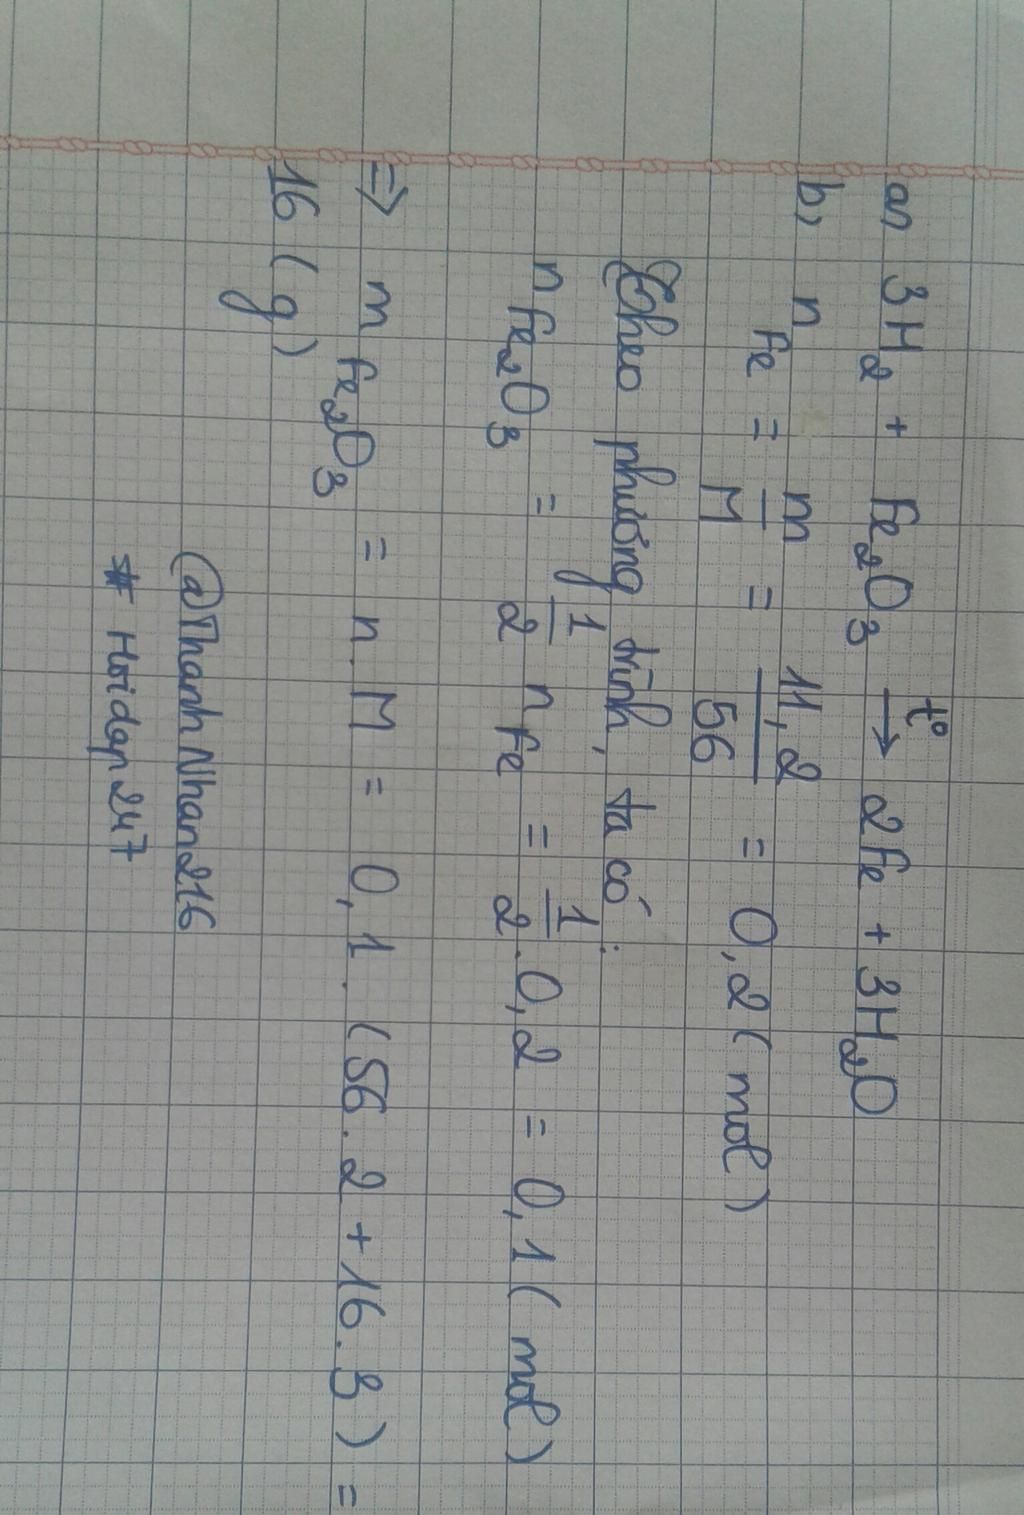 a) 3H₂ + Fe₂O₃ →(t°) 2Fe + 3H₂O
b) n Fe = m/M = 11,2/56 = 0,2 (mol)
Theo phương trình, ta có:
n Fe₂O₃ = 1/2 n Fe = 1/2 . 0,2 = 0,1 (mol)
=> m Fe₂O₃ = n.M = 0,1. (56.2 + 16.3) =
16 (g)
@ThanhNhan216
# Hoidap247